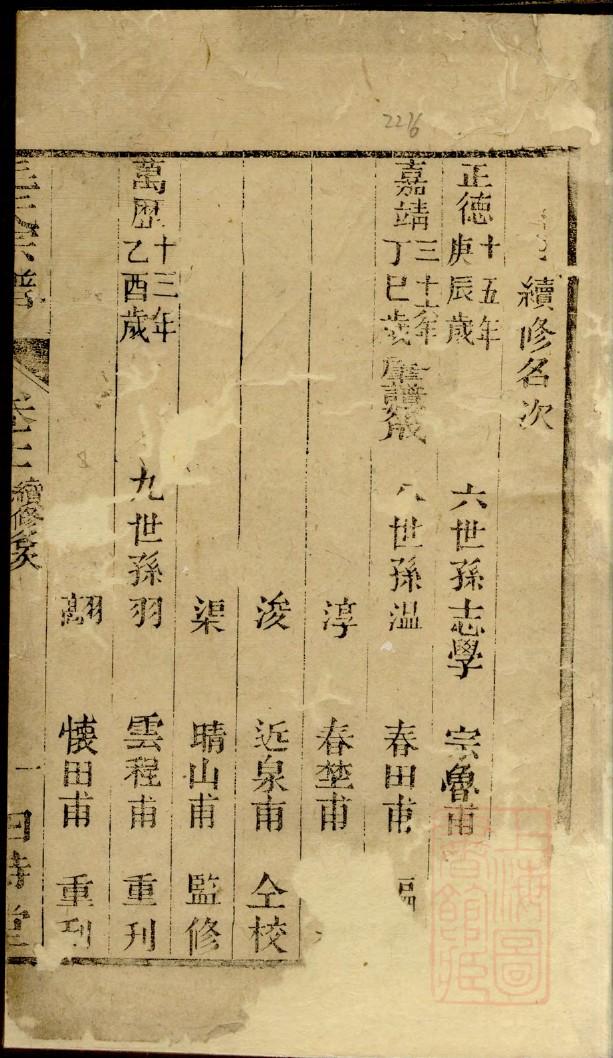 續修名次
正德十五年庚辰歲 六世孫志學 宗魯甫
嘉靖三十六年丁巳歲舊譜成 八世孫温 春田甫
淳 春埜甫
浚 近泉甫 仝校
渠 晴山甫 監修
萬歷十三年乙酉歲 九世孫羽 雲程甫 重刊
翮 懷田甫 重刊
宗譜 續修名次 一
2216